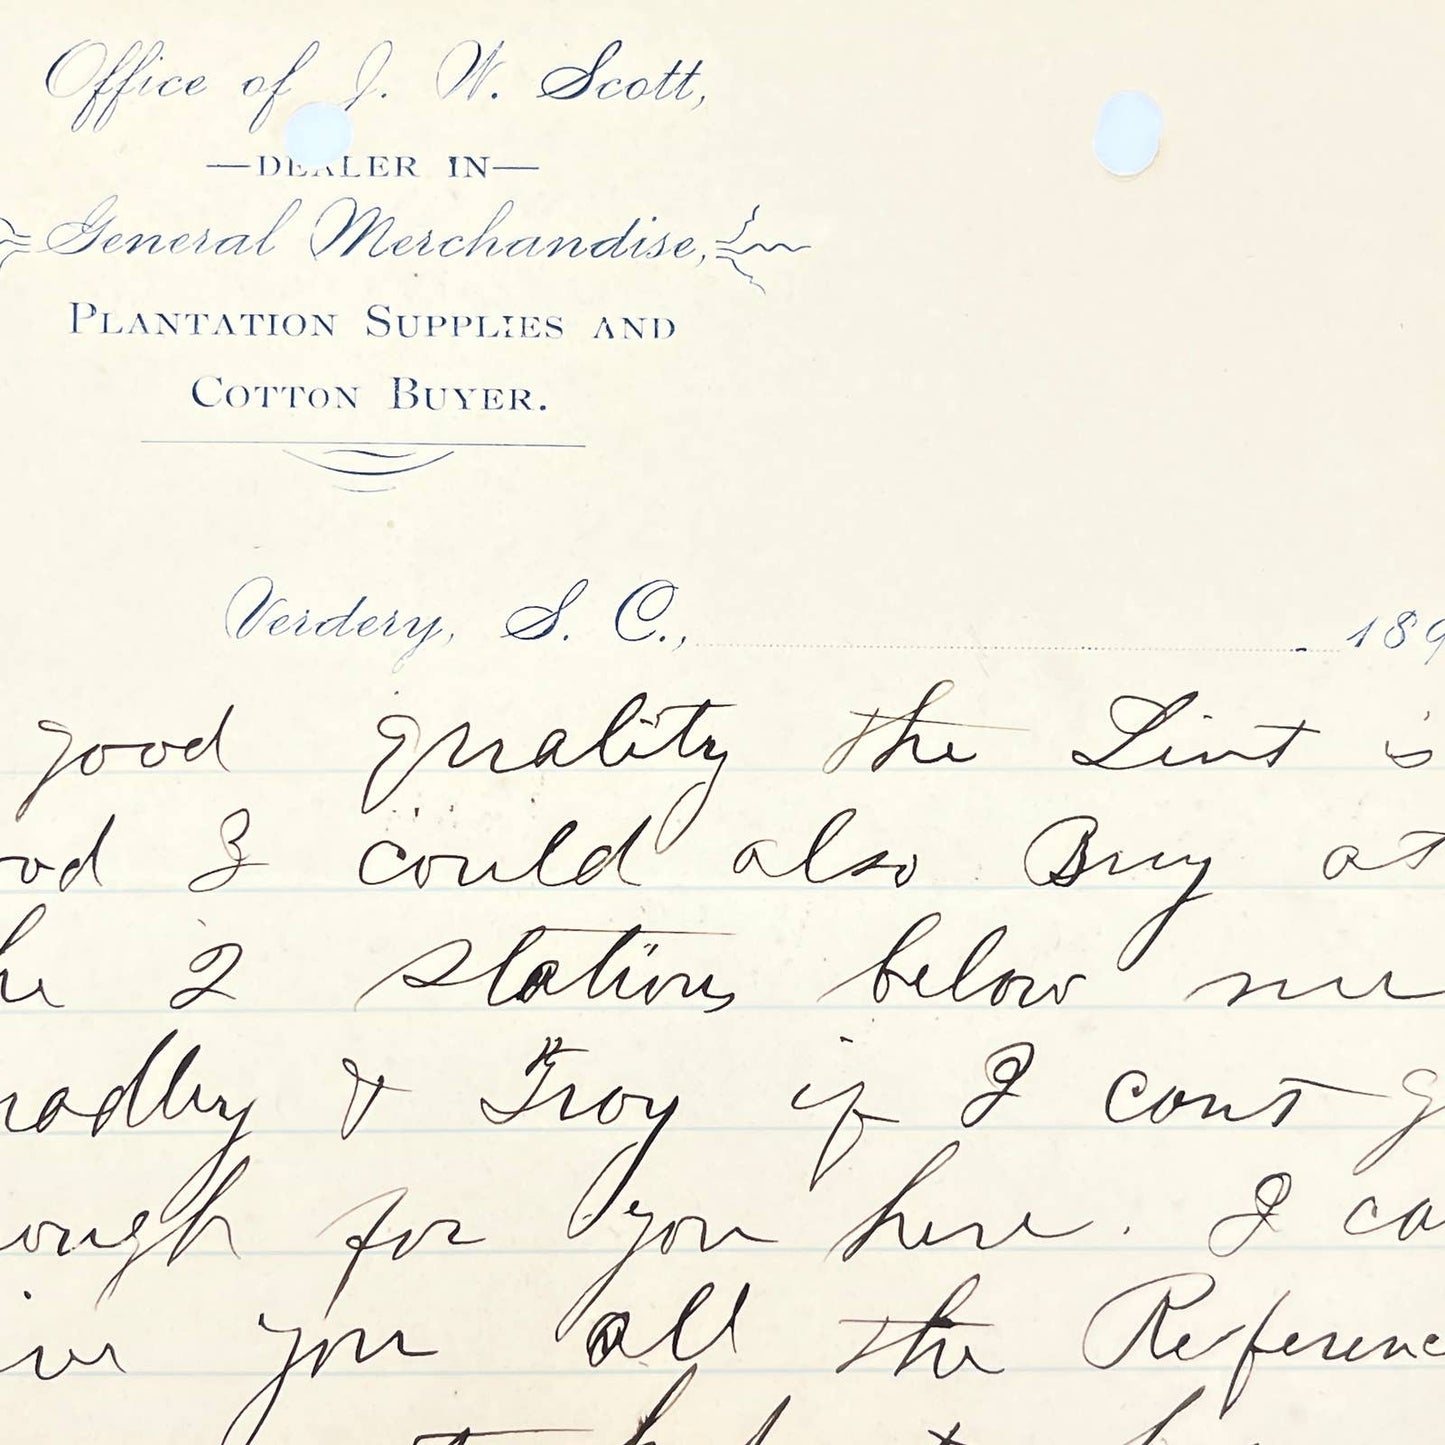 Office of J. W. Scott,
—DEALER IN—
General Merchandise,
PLANTATION SUPPLIES AND
COTTON BUYER.
Verdery, S. C., 189
good quality the Lint is
ood I could also Buy at
he 2 stations below me
radley & Troy if I cant g
ough for you here. I ca
ive you all the Referenc